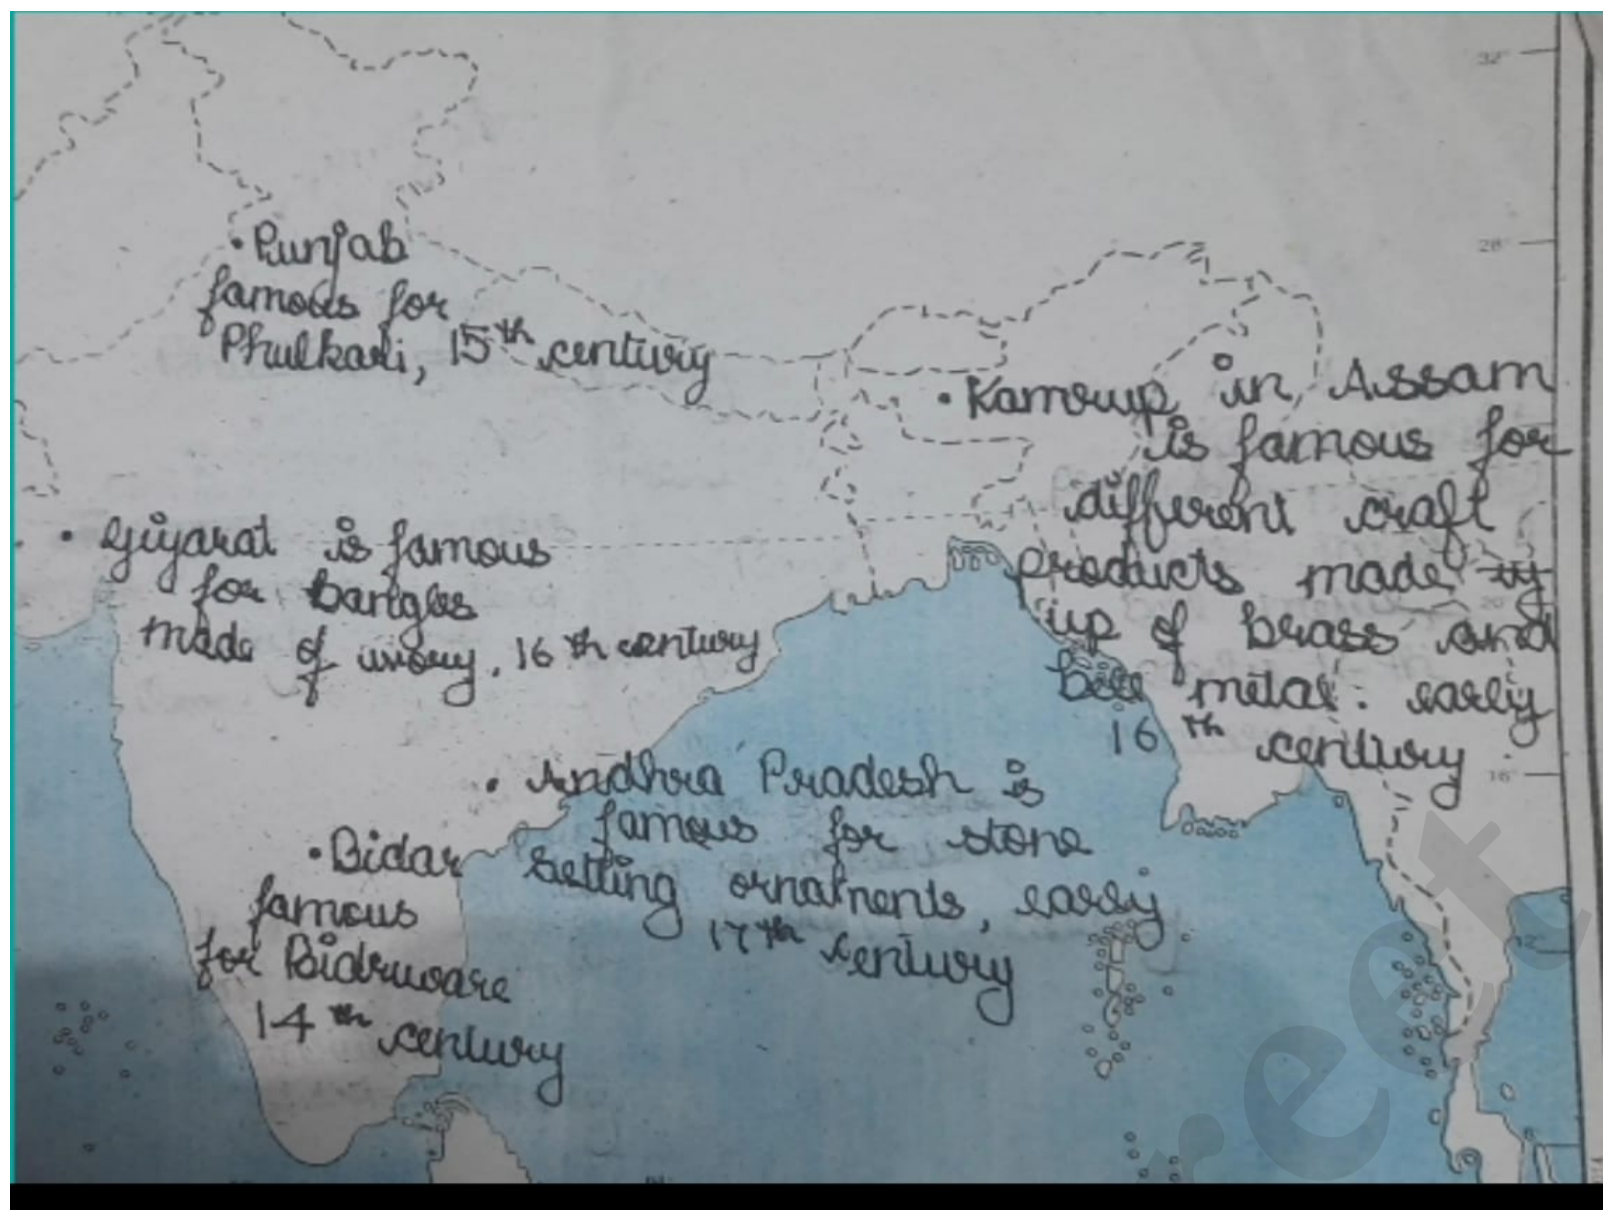 32°
28°
• Punjab
famous for
Phulkari, 15th century
• Kamrup in Assam
is famous for
different craft
products made
up of brass and
bell metal. early
16th century
• Gujarat is famous
for bangles
made of ivory, 16th century
20
16°
• Andhra Pradesh is
famous for stone
setting ornaments, early
17th century
• Bidar
famous
for Bidruware
14th century
12°
reet